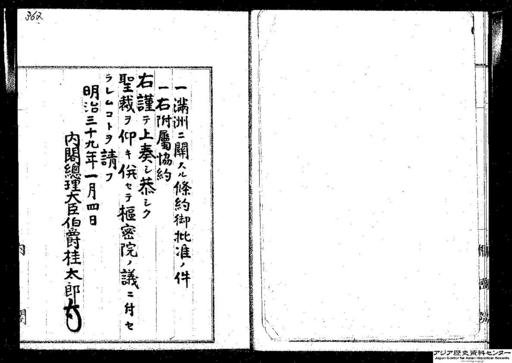 362
一滿洲ニ關スル條約御批准ノ件
一右附屬協約
右謹テ上奏シ恭シク
聖裁ヲ仰キ併セテ樞密院ノ議ニ付セ
ラレムコトヲ請フ
明治三十九年一月四日
內閣總理大臣伯爵桂太郎
內閣
アジア歴史資料センター
Japan Center for Asian Historical Records